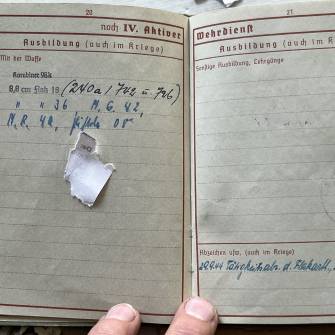 20
noch IV. Aktiver
Ausbildung (auch im Kriege)
Mit der Waffe
8,8 cm Flak 18 (240a / 742 u. 726)
" " 36 M. G. 42,
08
21
Wehrdienst
Ausbildung (auch im Kriege)
Sonstige Ausbildung, Lehrgänge
Abzeichen usw. (auch im Kriege)
29.9.44 Tätigkeitsabz. d.